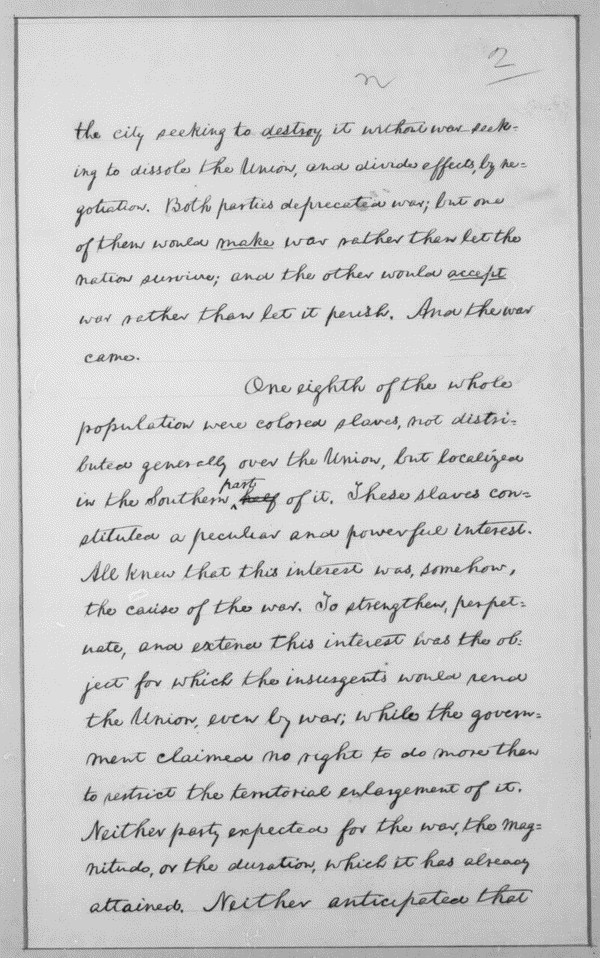 2
the city seeking to destroy it without war seek-
ing to dissole the Union, and divide effects, by ne-
gotiation. Both parties deprecated war; but one
of them would make war rather than let the
nation survive; and the other would accept
war rather than let it perish. And the war
came.
One eighth of the whole
population were colored slaves, not distri-
buted generally over the Union, but localized
part
in the Southern half of it. These slaves con-
stituted a peculiar and powerful interest.
All knew that this interest was, somehow,
the cause of the war. To strengthen, perpet-
uate, and extend this interest was the ob-
ject for which the insurgents would rend
the Union, even by war; while the govern-
ment claimed no right to do more than
to restrict the territorial enlargement of it.
Neither party expected for the war, the mag-
nitude, or the duration, which it has already
attained. Neither anticipated that